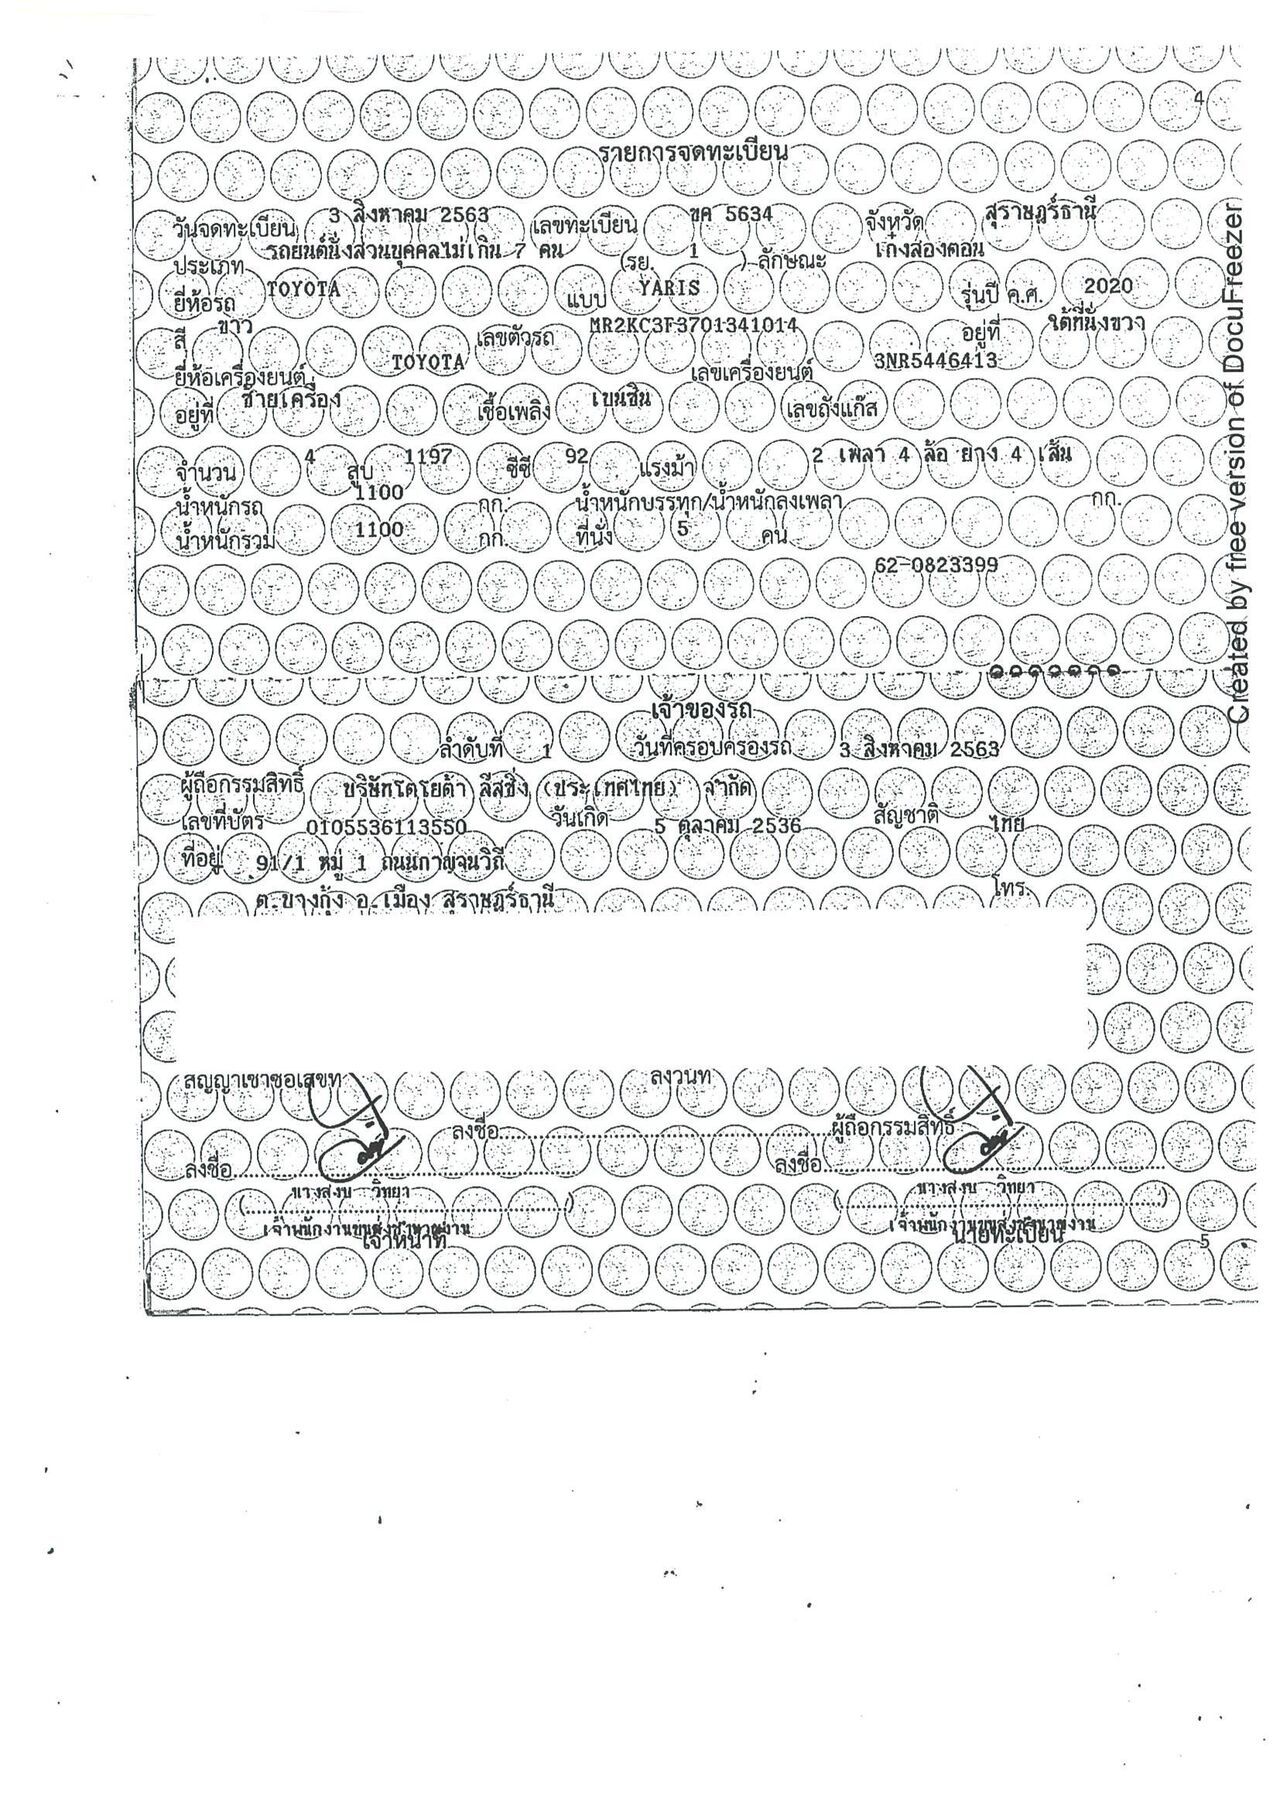 4
รายการจดทะเบียน
วันจดทะเบียน 3 สิงหาคม 2563 เลขทะเบียน ขค 5634 จังหวัด สุราษฎร์ธานี
ประเภท รถยนต์นั่งส่วนบุคคลไม่เกิน 7 คน (รย. 1 ) ลักษณะ เก๋งสองตอน
ยี่ห้อรถ TOYOTA แบบ YARIS รุ่นปี ค.ศ. 2020
สี ขาว เลขตัวรถ MR2KC3F3701341014 อยู่ที่ ใต้ที่นั่งขวา
ยี่ห้อเครื่องยนต์ TOYOTA เลขเครื่องยนต์ 3NR5446413
อยู่ที่ ซ้ายเครื่อง เชื้อเพลิง เบนซิน เลขถังแก๊ส
จำนวน 4 สูบ 1197 ซีซี 92 แรงม้า 2 เพลา 4 ล้อ ยาง 4 เส้น
น้ำหนักรถ 1100 กก. น้ำหนักบรรทุก/น้ำหนักลงเพลา กก.
น้ำหนักรวม 1100 กก. ที่นั่ง 5 คน
62-0823399
เจ้าของรถ
ลำดับที่ 1 วันที่ครอบครองรถ 3 สิงหาคม 2563
ผู้ถือกรรมสิทธิ์ บริษัทโตโยต้า ลีสซิ่ง (ประเทศไทย) จำกัด
เลขที่บัตร 0105536113550 วันเกิด 5 ตุลาคม 2536 สัญชาติ ไทย
ที่อยู่ 91/1 หมู่ 1 ถนนกาญจนวิถี
ต.บางกุ้ง อ.เมือง สุราษฎร์ธานี โทร.
สัญญาเช่าซื้อเลขที่ ลงวันที่
ลงชื่อ ผู้ถือกรรมสิทธิ์
ลงชื่อ ลงชื่อ
(นางสงบ วิทยา) (นางสงบ วิทยา)
เจ้าพนักงานขนส่งชำนาญงาน เจ้าพนักงานขนส่งชำนาญงาน
เจ้าหน้าที่ นายทะเบียน 5
Created by free version of DocuFreezer